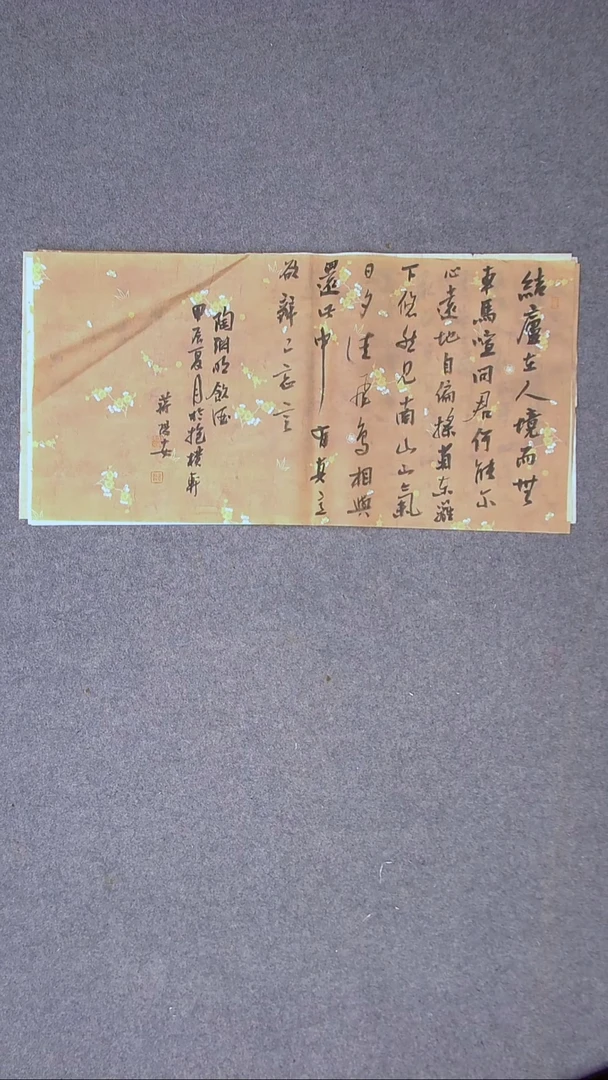 結廬在人境而無
車馬喧問君何能尔
心遠地自偏採菊东籬
下悠然見南山山氣
日夕佳飛鳥相與
還此中有真意
欲辯已忘言
陶淵明飲酒
甲辰夏月於抱樸軒
蔣